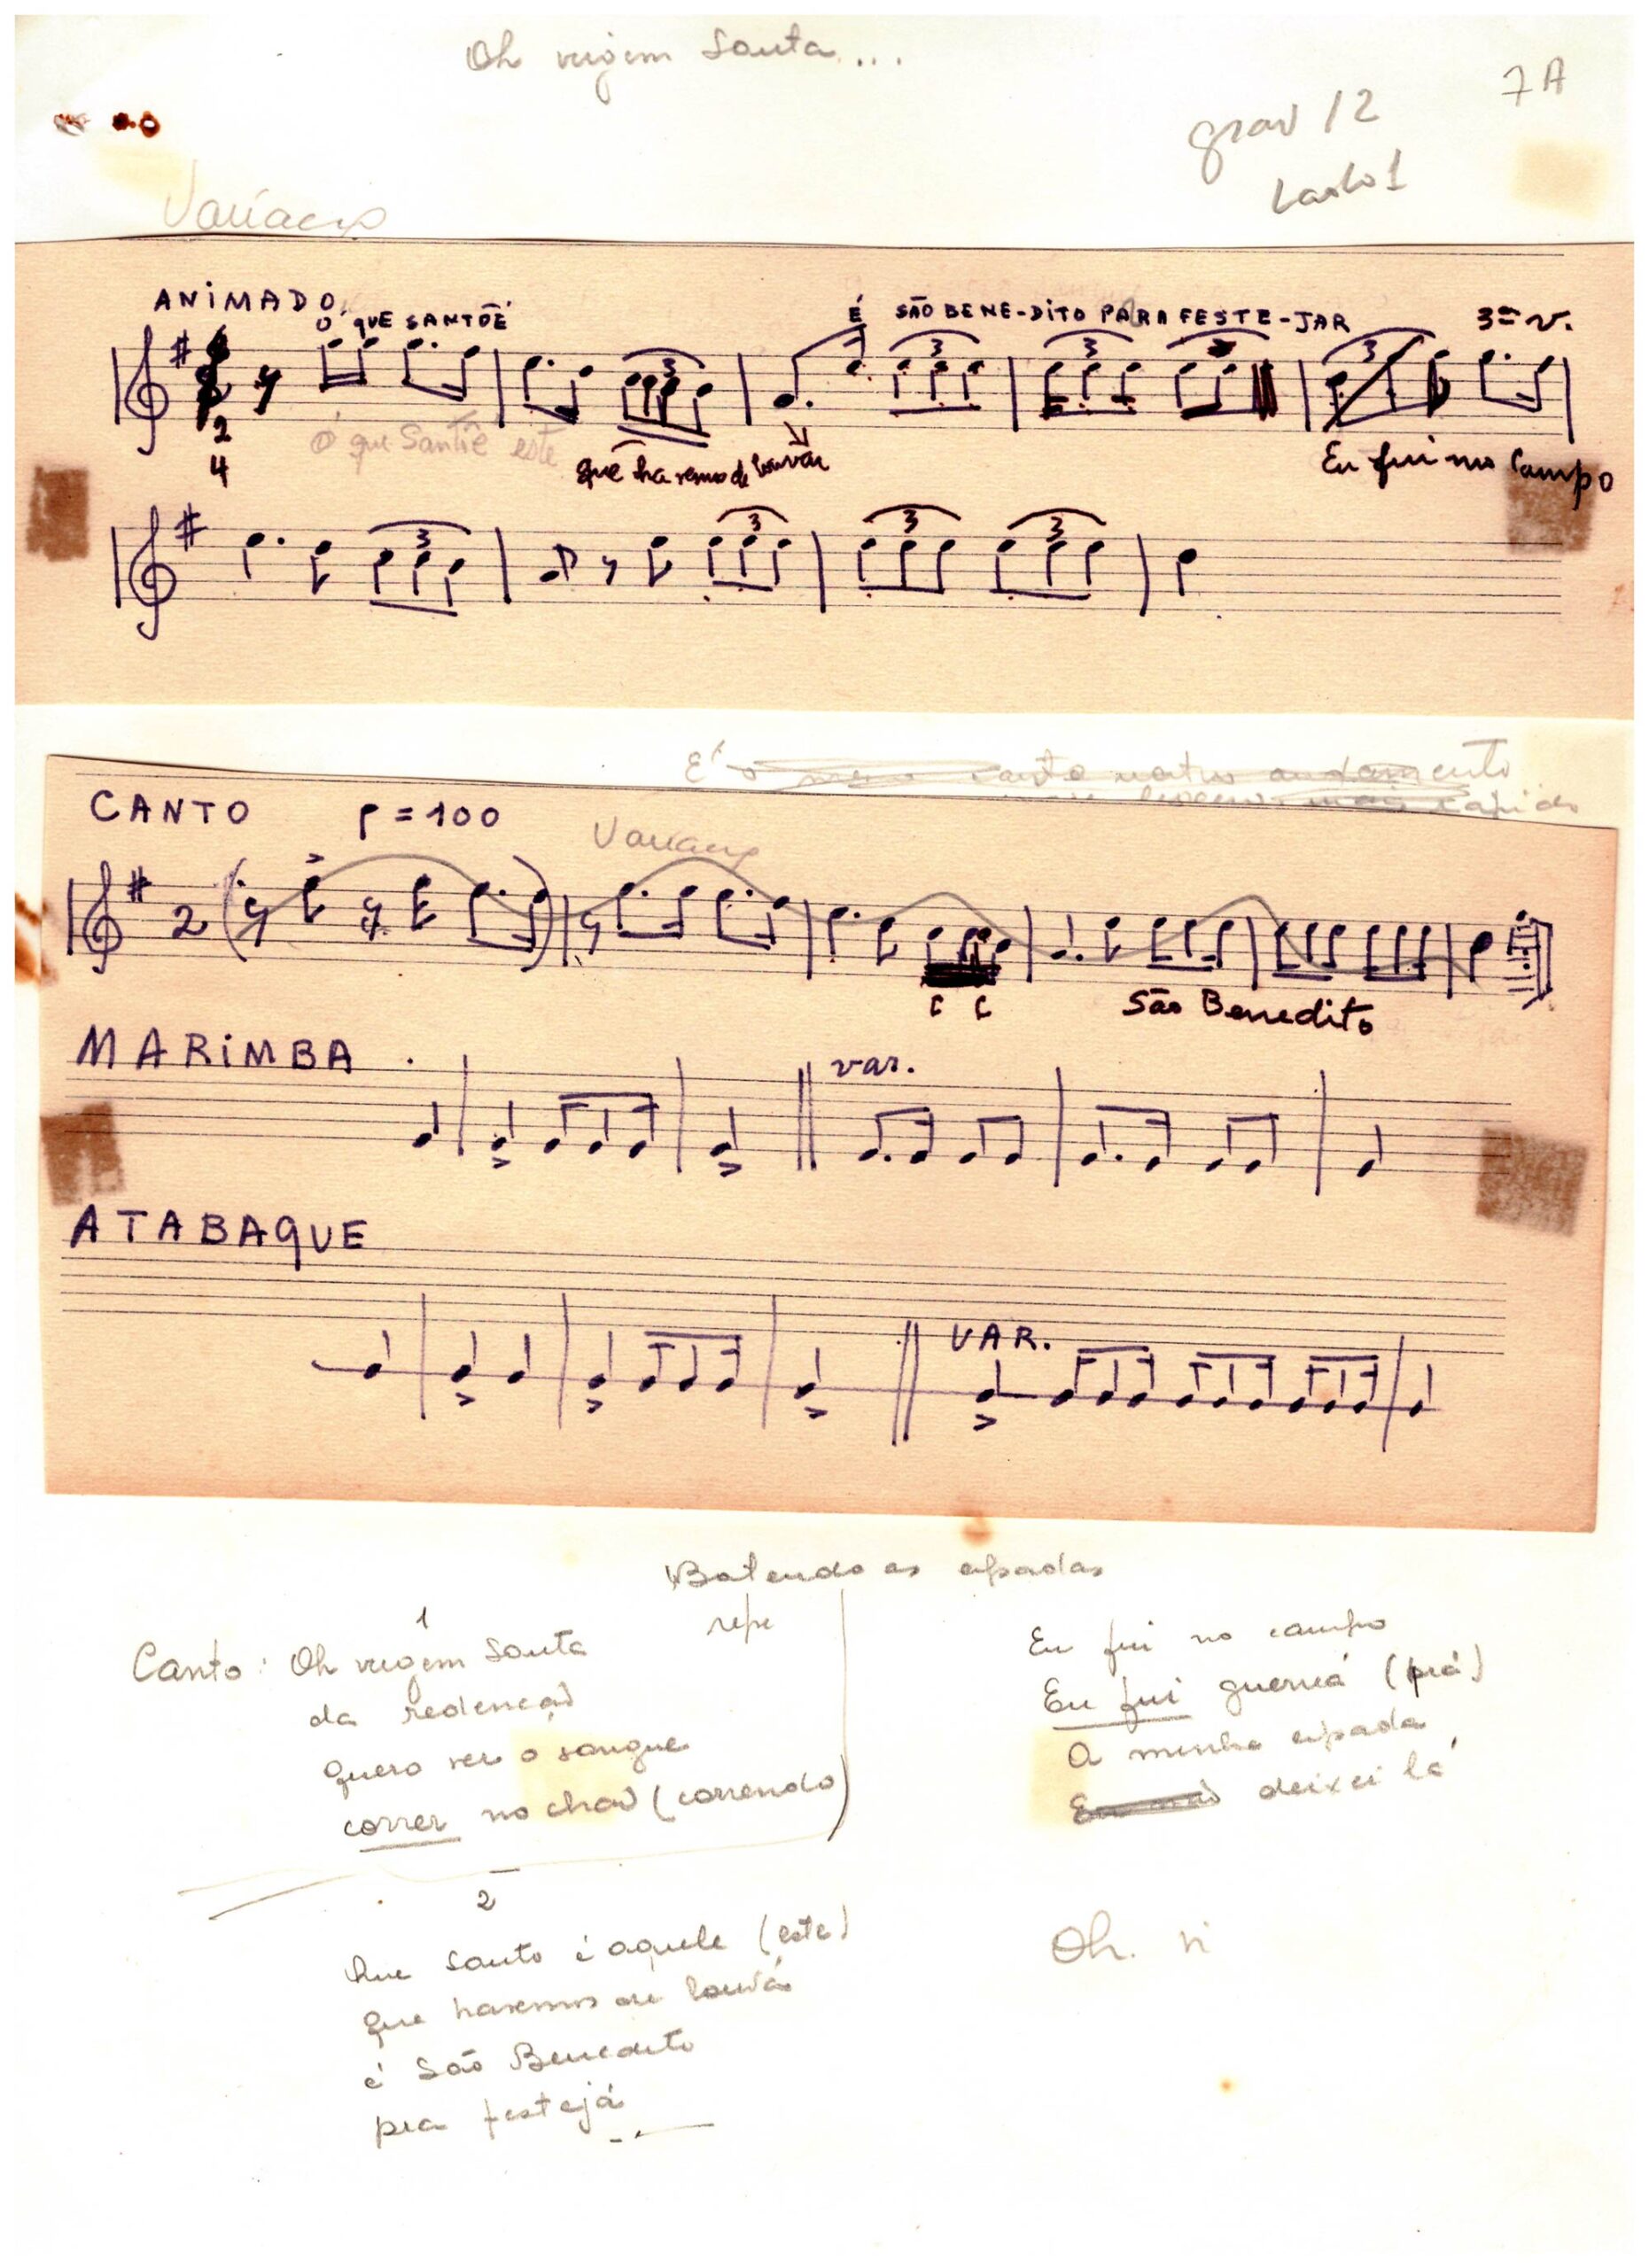 Oh virgem Santa...
7A
grav 12
Lado 1
Variação
ANIMADO
Ó QUE SANTOÉ
É SÃO BENE-DITO PARA FESTE-JAR
3ª v.
2
4
Ó que Santïe este
que haremos de louvar
Eu fui no campo
3 3 3 3 3
3 3 3 3
É o mesmo canto noutro andamento
mais rápido
CANTO = 100
Variação
2
C C
São Benedito
MARIMBA
var.
ATABAQUE
VAR.
Batendo as espadas
1
repe
Canto: Oh virgem Santa
da redenção
Quero ver o sangue
correr no chão (correndo)
2
Que Santo é aquele (este)
que haremos de louvá
é São Benedito
pra festejá
Eu fui no campo
Eu fui guerreá (piá)
A minha espada
deixei lá
Oh. vi